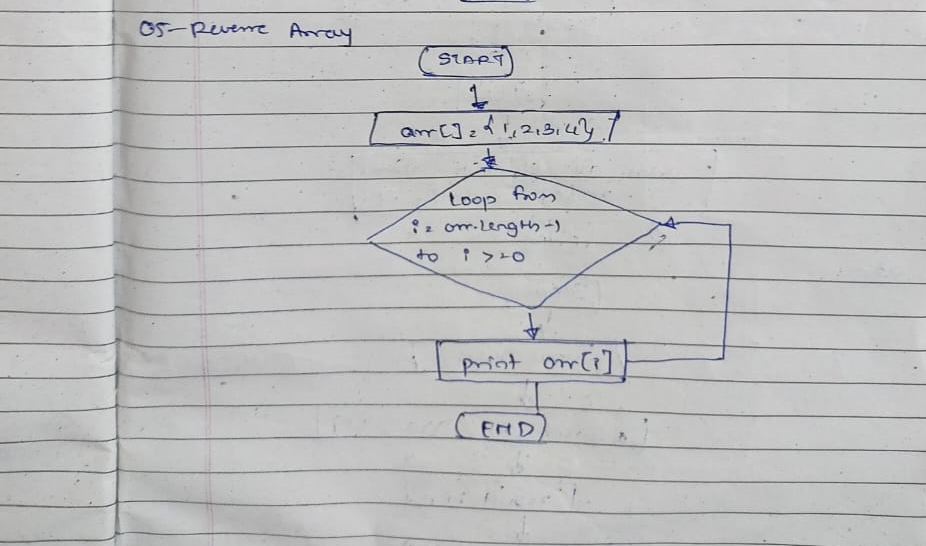 05- Reverse Array
START
arr[] = {1,2,3,4}
Loop from
i = arr.length-1
to i >=0
print arr[i]
END